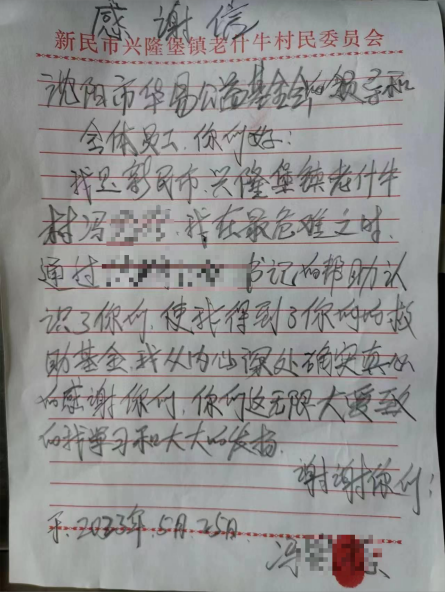 感谢信
新民市兴隆堡镇老什牛村民委员会
沈阳市华易公益基金会的领导和
全体员工,你们好:
我是新民市兴隆堡镇老什牛
村冯 我在最危难之时,
通过 书记的帮助认
识了你们,使我得到了你们的救
助基金,我从内心深处确实真心
的感谢你们,你们这无限大爱
的我学习和大大的发扬.
谢谢你们!
于2023年5月25日
冯